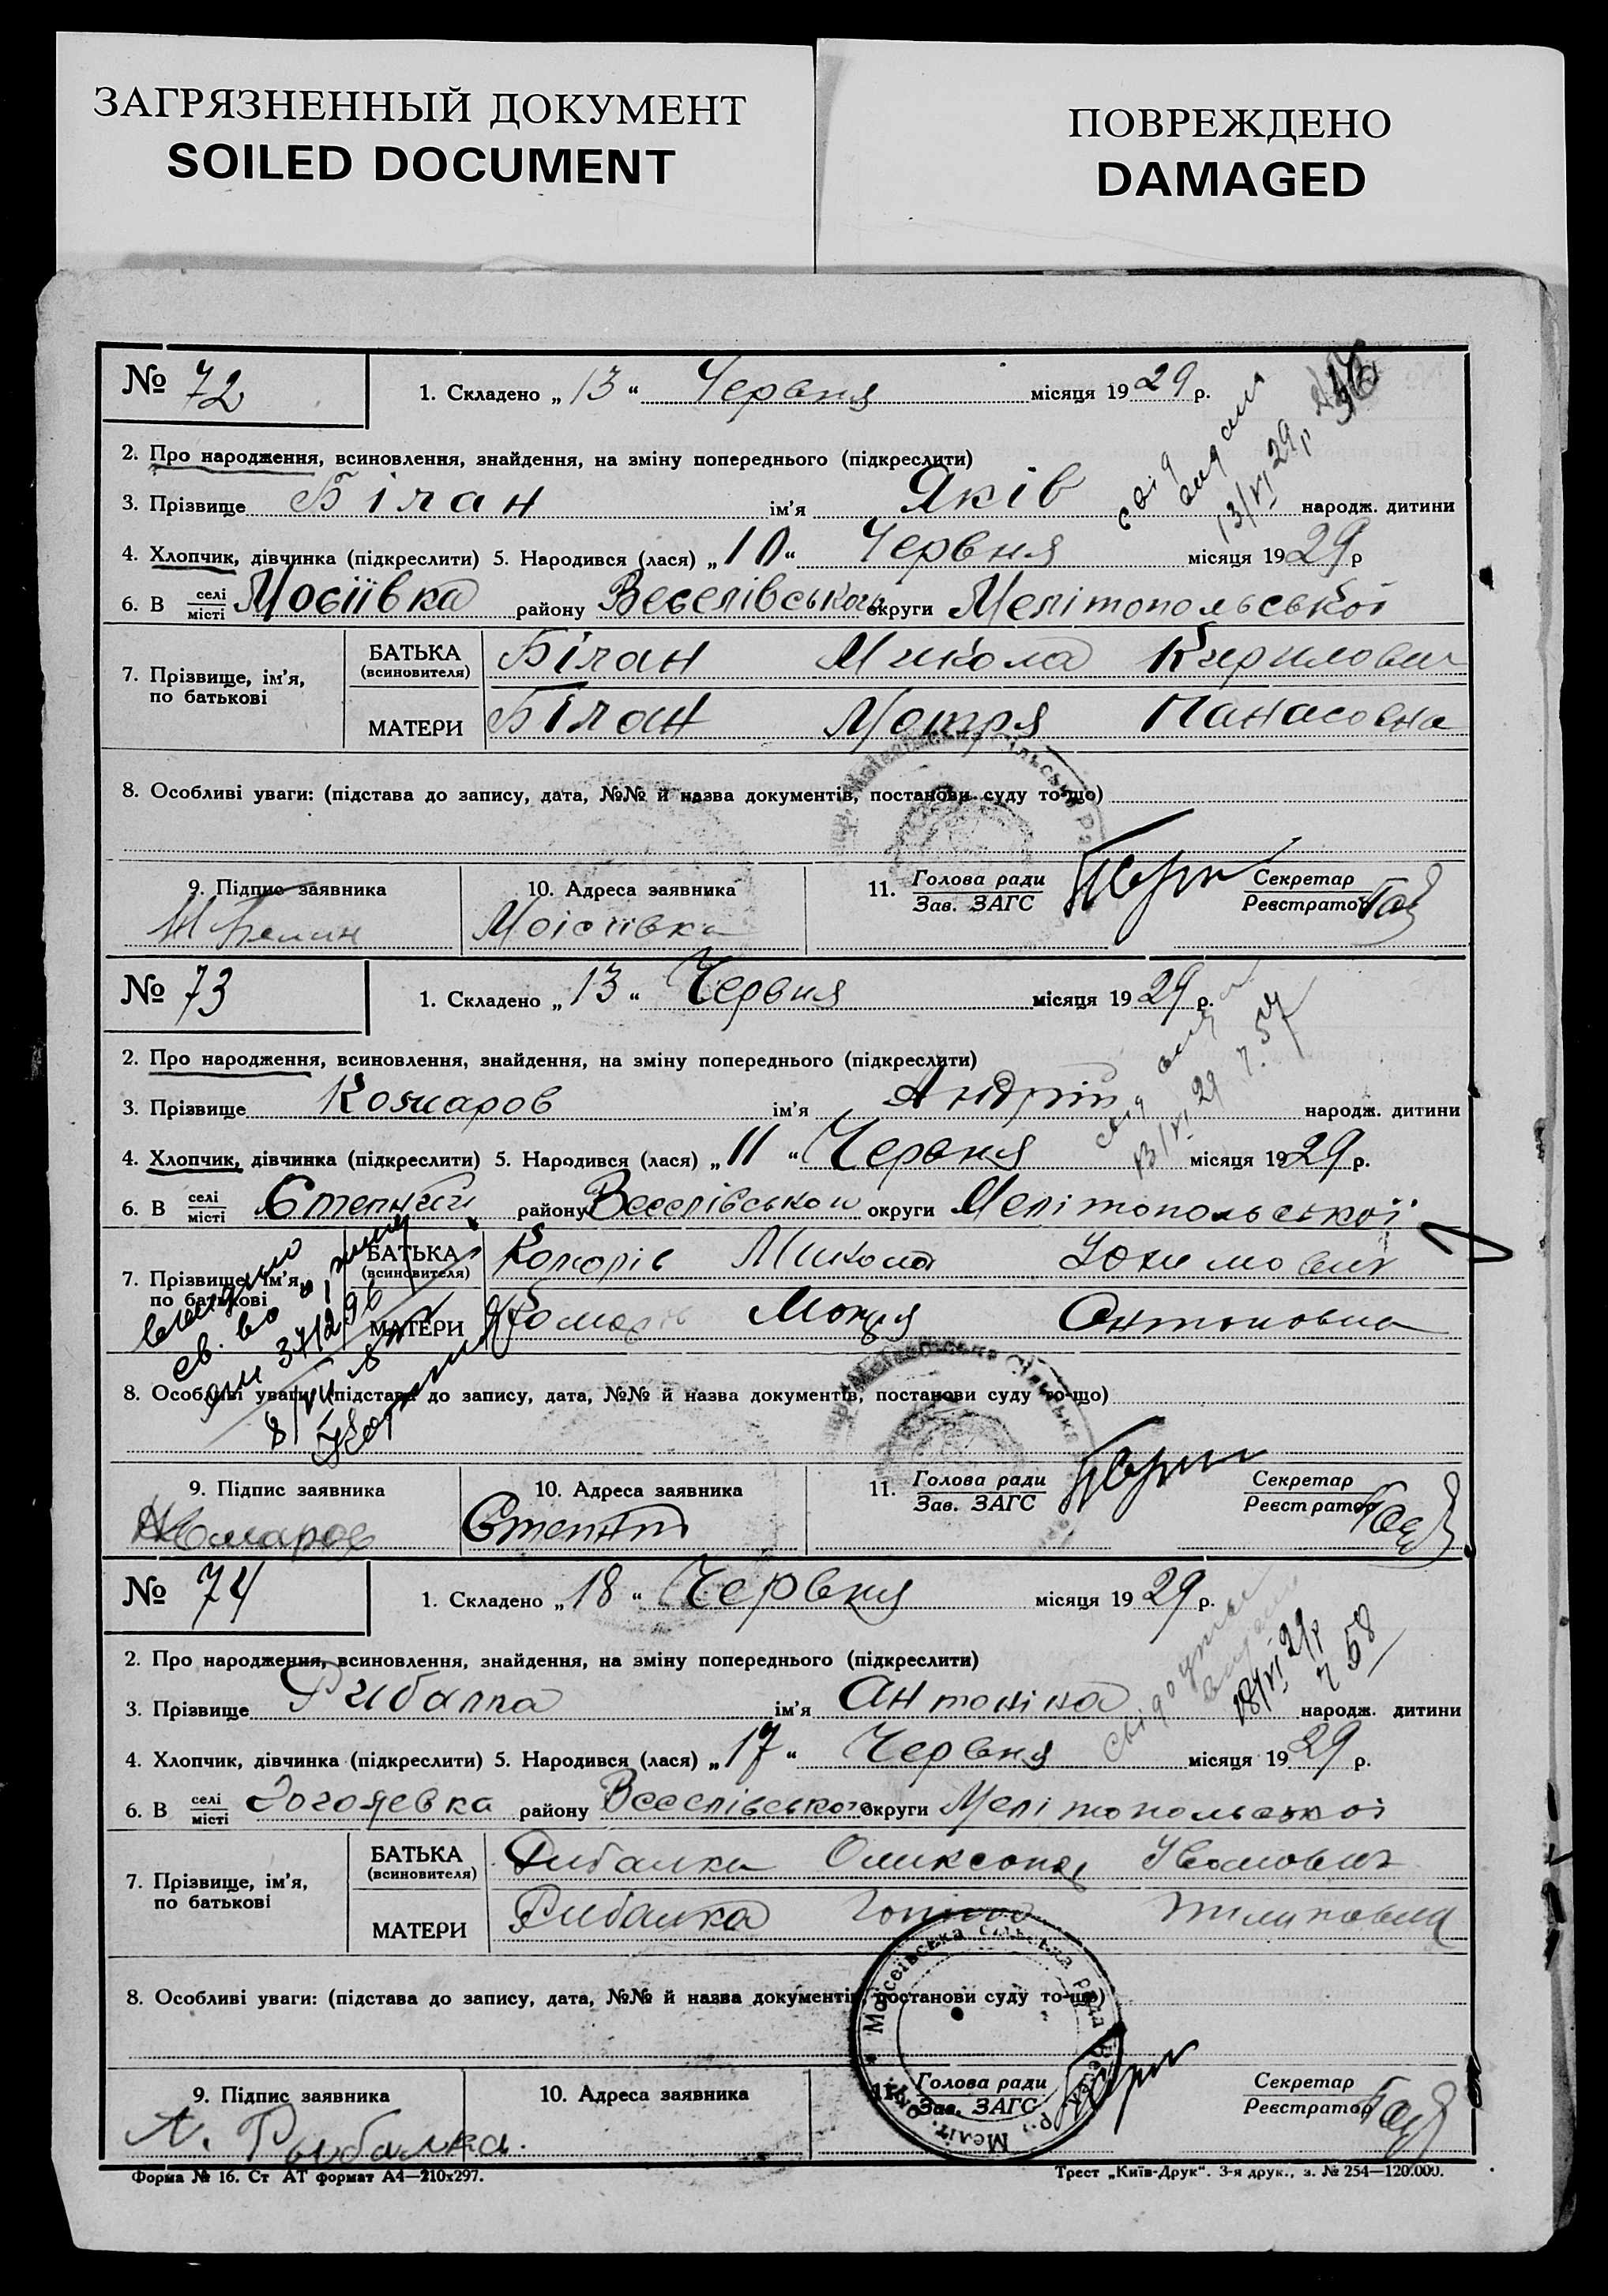 ЗАГРЯЗНЕННЫЙ ДОКУМЕНТ
SOILED DOCUMENT
ПОВРЕЖДЕНО
DAMAGED
№ 72
1. Складено „13“ Червня місяця 1929 р.
2. Про народження, всиновлення, знайдення, на зміну попереднього (підкреслити)
3. Прізвище Білан ім'я Яків народж. дитини
13/VI 29р
4. Хлопчик, дівчинка (підкреслити) 5. Народився (лася) „10“ Червня місяця 1929р
6. В селі місті Мосіївка району Веселівського округи Мелітопольської
7. Прізвище, ім'я, по батькові
БАТЬКА (всиновителя) Білан Микола Кирилович
МАТЕРИ Білан Мотря Панасовна
8. Особливі уваги: (підстава до запису, дата, №№ й назва документів, постанови суду то-що)
9. Підпис заявника
10. Адреса заявника
11. Голова ради Зав. ЗАГС
Секретар Реєстратор
№ 73
1. Складено „13“ Червня місяця 1929 р.
2. Про народження, всиновлення, знайдення, на зміну попереднього (підкреслити)
3. Прізвище Комаров ім'я Андрій народж. дитини
13/VI 29
4. Хлопчик, дівчинка (підкреслити) 5. Народився (лася) „11“ Червня місяця 1929 р.
6. В селі місті району Веселівськои округи Мелітопольської
7. Прізвище, ім'я, по батькові
БАТЬКА (всиновителя) Комарів Микола Юхимович
МАТЕРИ Комарів Мотря Антоновна
8. Особливі уваги: (підстава до запису, дата, №№ й назва документів, постанови суду то-що)
9. Підпис заявника
10. Адреса заявника
11. Голова ради Зав. ЗАГС
Секретар Реєстратор
№ 74
1. Складено „18“ Червня місяця 1929 р.
2. Про народження, всиновлення, знайдення, на зміну попереднього (підкреслити)
3. Прізвище Рибалка ім'я Антоніна народж. дитини
18/VI 29р
№ 58
4. Хлопчик, дівчинка (підкреслити) 5. Народився (лася) „17“ Червня місяця 1929 р.
6. В селі місті району Веселівського округи Мелітопольської
7. Прізвище, ім'я, по батькові
БАТЬКА (всиновителя) Рибалка Олександ Іванович
МАТЕРИ Рибалка Пилиповна
8. Особливі уваги: (підстава до запису, дата, №№ й назва документів, постанови суду то-що)
Мойсеївська сільська рада
9. Підпис заявника
10. Адреса заявника
11. Голова ради Зав. ЗАГС
Секретар Реєстратор
Рыбалка.
Форма № 16. Ст АТ формат А4—210х297.
Трест „Київ-Друк“. 3-я друк., з. № 254—120.000.